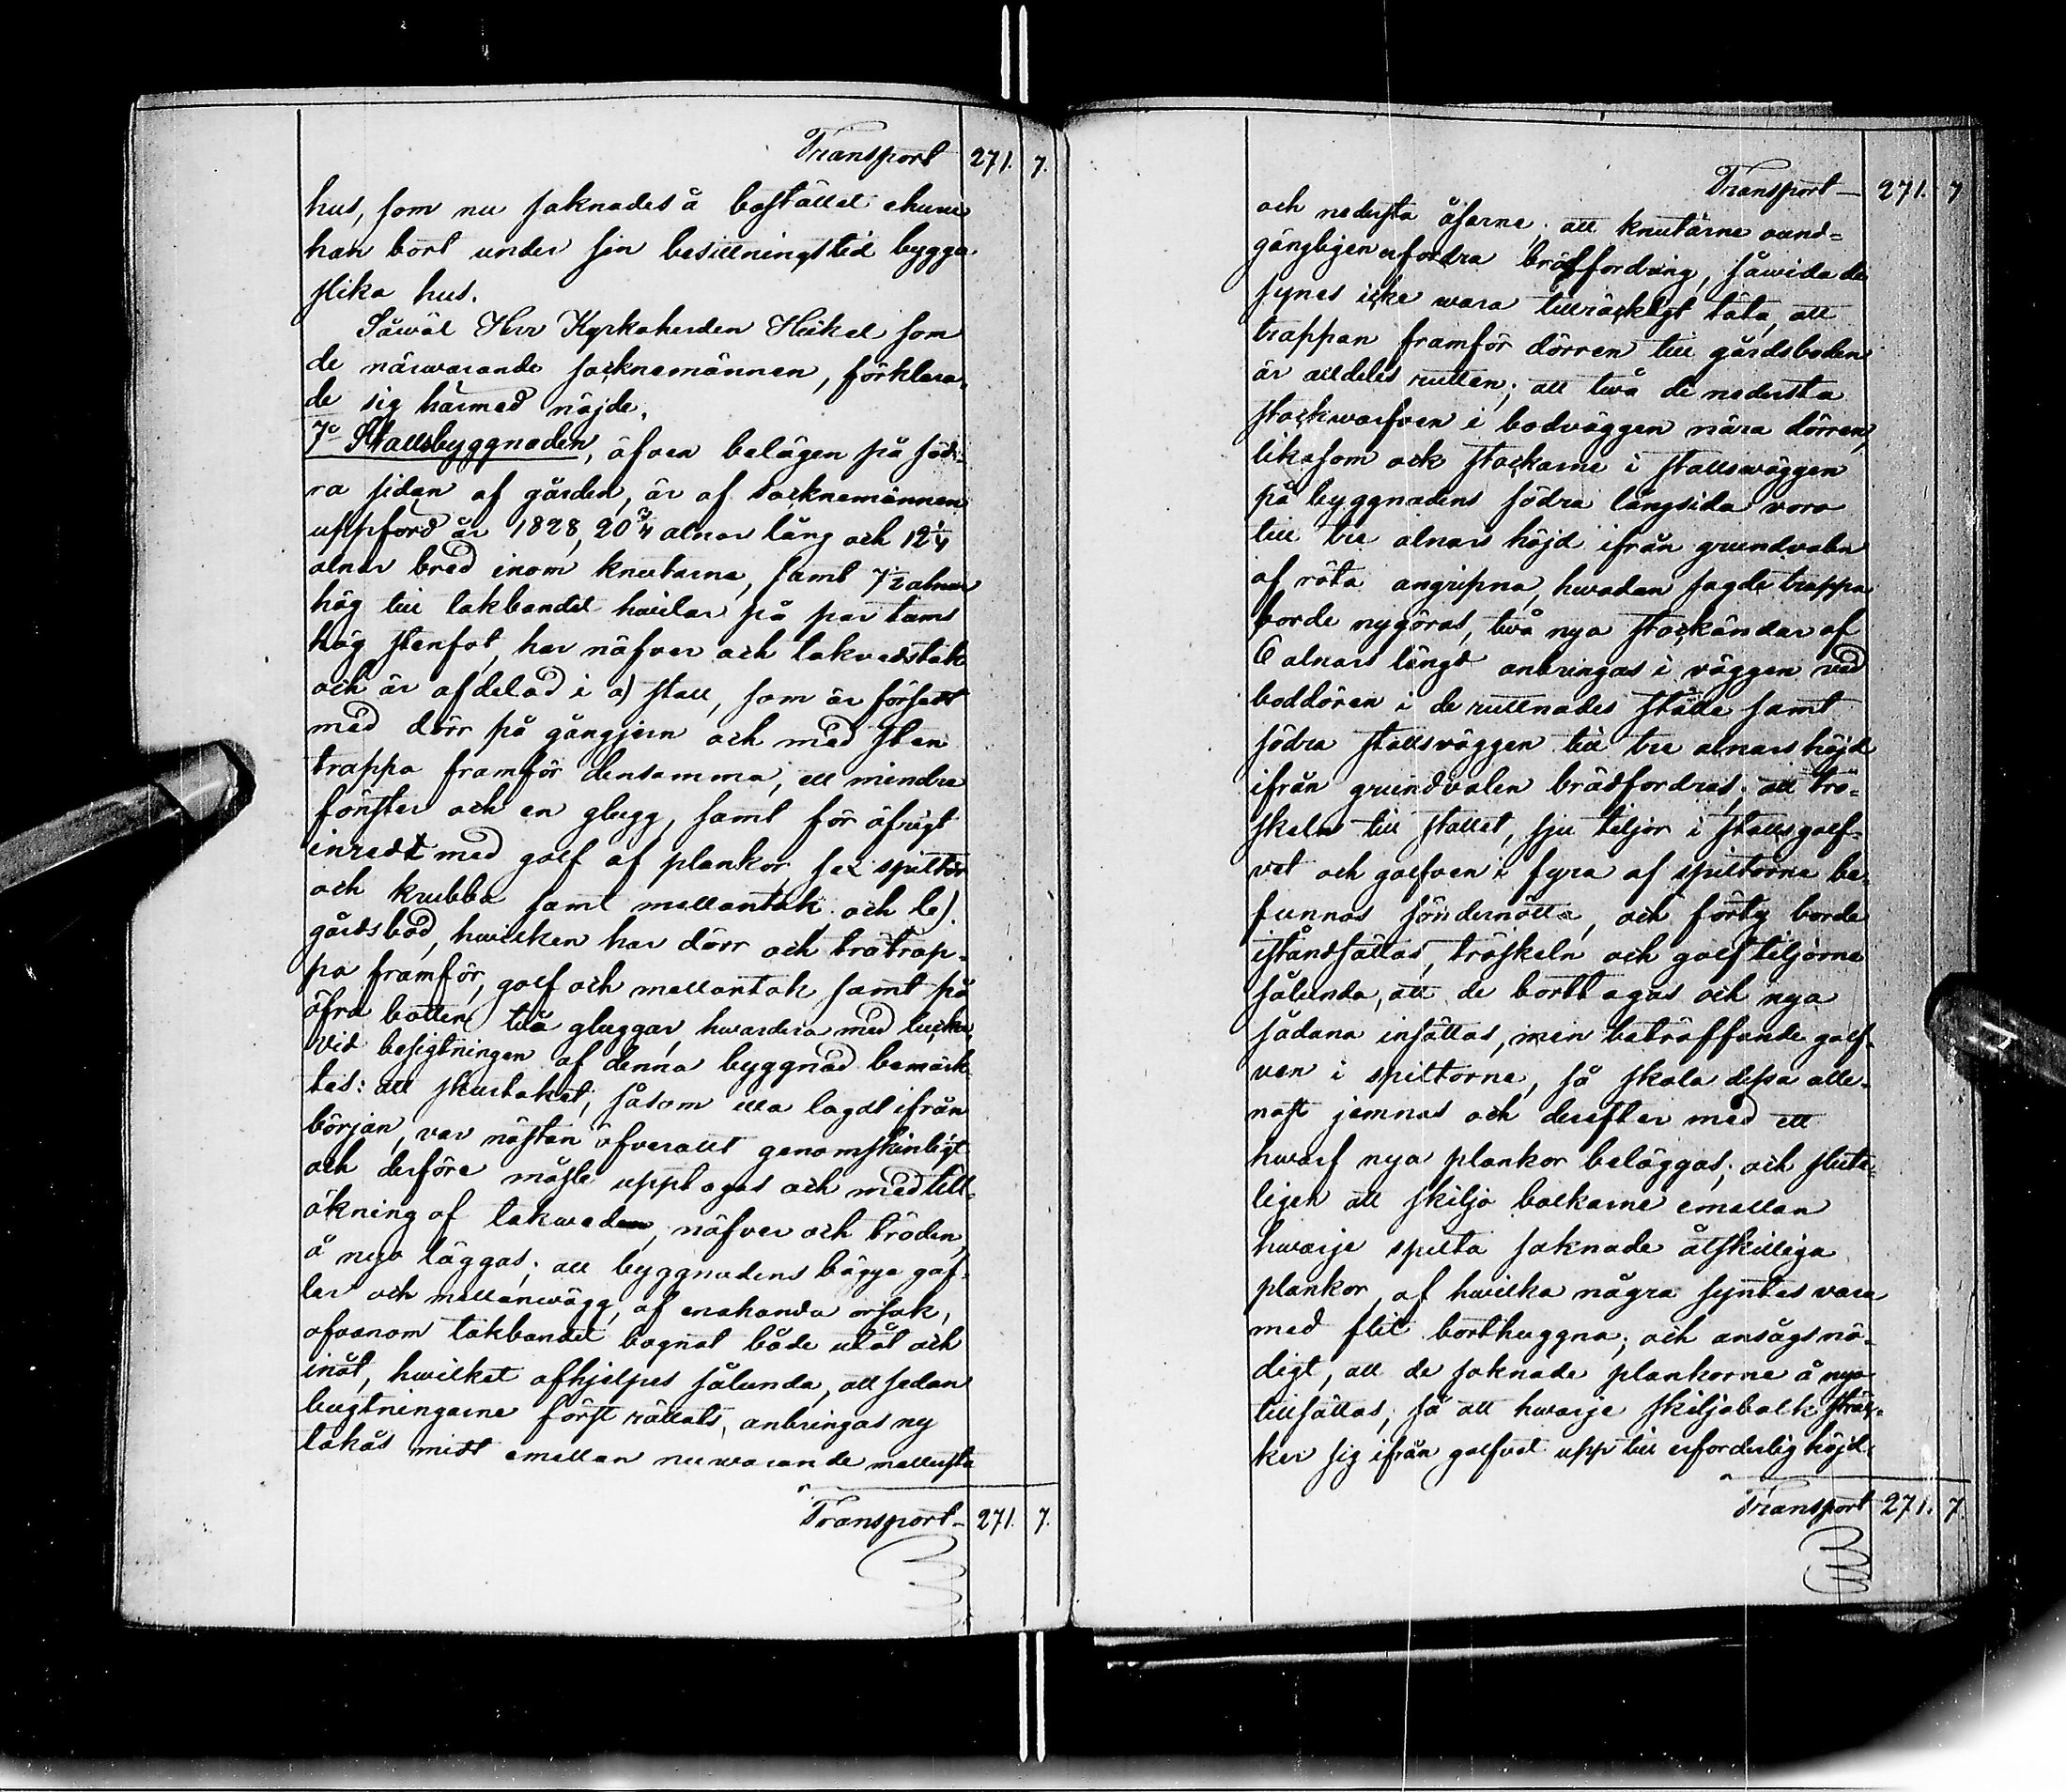 Transport 271. 7.
hus, som nu saknades å bostället ehuru
han bort under sin besittningstid bygga
slika hus.
Såwäl Herr Kyrkoherden Heikel som
de närwarande socknemännen, förklara-
de sig härmed nöjde.
7o Stallsbyggnaden, äfven belägen på söd-
ra sidan af gården, är af socknemännen
uppförd år 1828, 20 3/4 alnar lång och 12 1/4
alnar bred inom knutarna, samt 7 1/2 alnar
hög till takbandet hwilar på par tams
hög stenfot, har näfver och takvedstak
och är afdelad i a) stall, som är försedt
med dörr på gångjern och med sten
trappa framför densamma, ett mindre
fönster och en glugg, samt för öfrigt
inredt med golf af plankor, sex spiltor
och krubba samt mellantak och b).
gårdsbod, hwilken har dörr och trätrap-
pa framför, golf och mellantak samt på
öfra botten två gluggar, hwardera med lucka.
Vid besigtningen af denna byggnad bemärk-
tes: att skurtaket, såsom illa lagdt ifrån
början, var nästan öfverallt genomskinligt
och derföre måste upptagas och med till-
ökning af takweden, näfver och tröden,
å nyo läggas; att byggnadens bägge gaf-
lar och mellanwägg, af enahanda orsak,
ofvanom takbandet bognat både utåt och
inåt, hwilket afhjelpes sålunda, att sedan
bugtningarne först rättats, anbringas ny
takås midt emellan nuwarande mellersta
Transport 271. 7.
Transport 271. 7
och nedersta åsarne; att knutarne ound-
gängligen erfordra brädfordring, såwida de
synes icke wara tillräckligt täta, att
trappan framför dörren till gårdsboden
är alldeles rutten; att twå de nedersta
stockwarfven i bodväggen nära dörren,
likasom ock stockarne i stallswäggen
på byggnadens södra långsida voro
till tre alnars höjd ifrån grundvalen
af röta angripna, hwadan sagde trappa
borde nygöras, twå nya stockändar af
6 alnars längd anbringas i väggen vid
boddören i de ruttnades ställe samt
södra stallsväggen till tre alnars höjd
ifrån grundvalen brädfordras; att trö-
skeln till stallet, sju tiljor i stallsgolf-
vet och golfven i fyra af spiltorna be-
funnos söndernötta, och förty borde
iståndsättas, tröskeln och golftiljorne
sålunda, att de borttagas och nya
sådana insättas, men beträffande golf-
ven i spiltorne, så skola dessa alle-
nast jemnas och derefter med ett
hwarf nya plankor beläggas; och slute-
ligen att skilje balkarne emellan
hwarje spilta saknade åtskilliga
plankor, af hwilka några syntes vara
med flit borthuggna; och ansågs nö-
digt, att de saknade plankorne å nyo
tillsättas, så att hwarje skiljebalk sträc-
ker sig ifrån golfvet upp till erforderlig höjd.
Transport 271. 7.